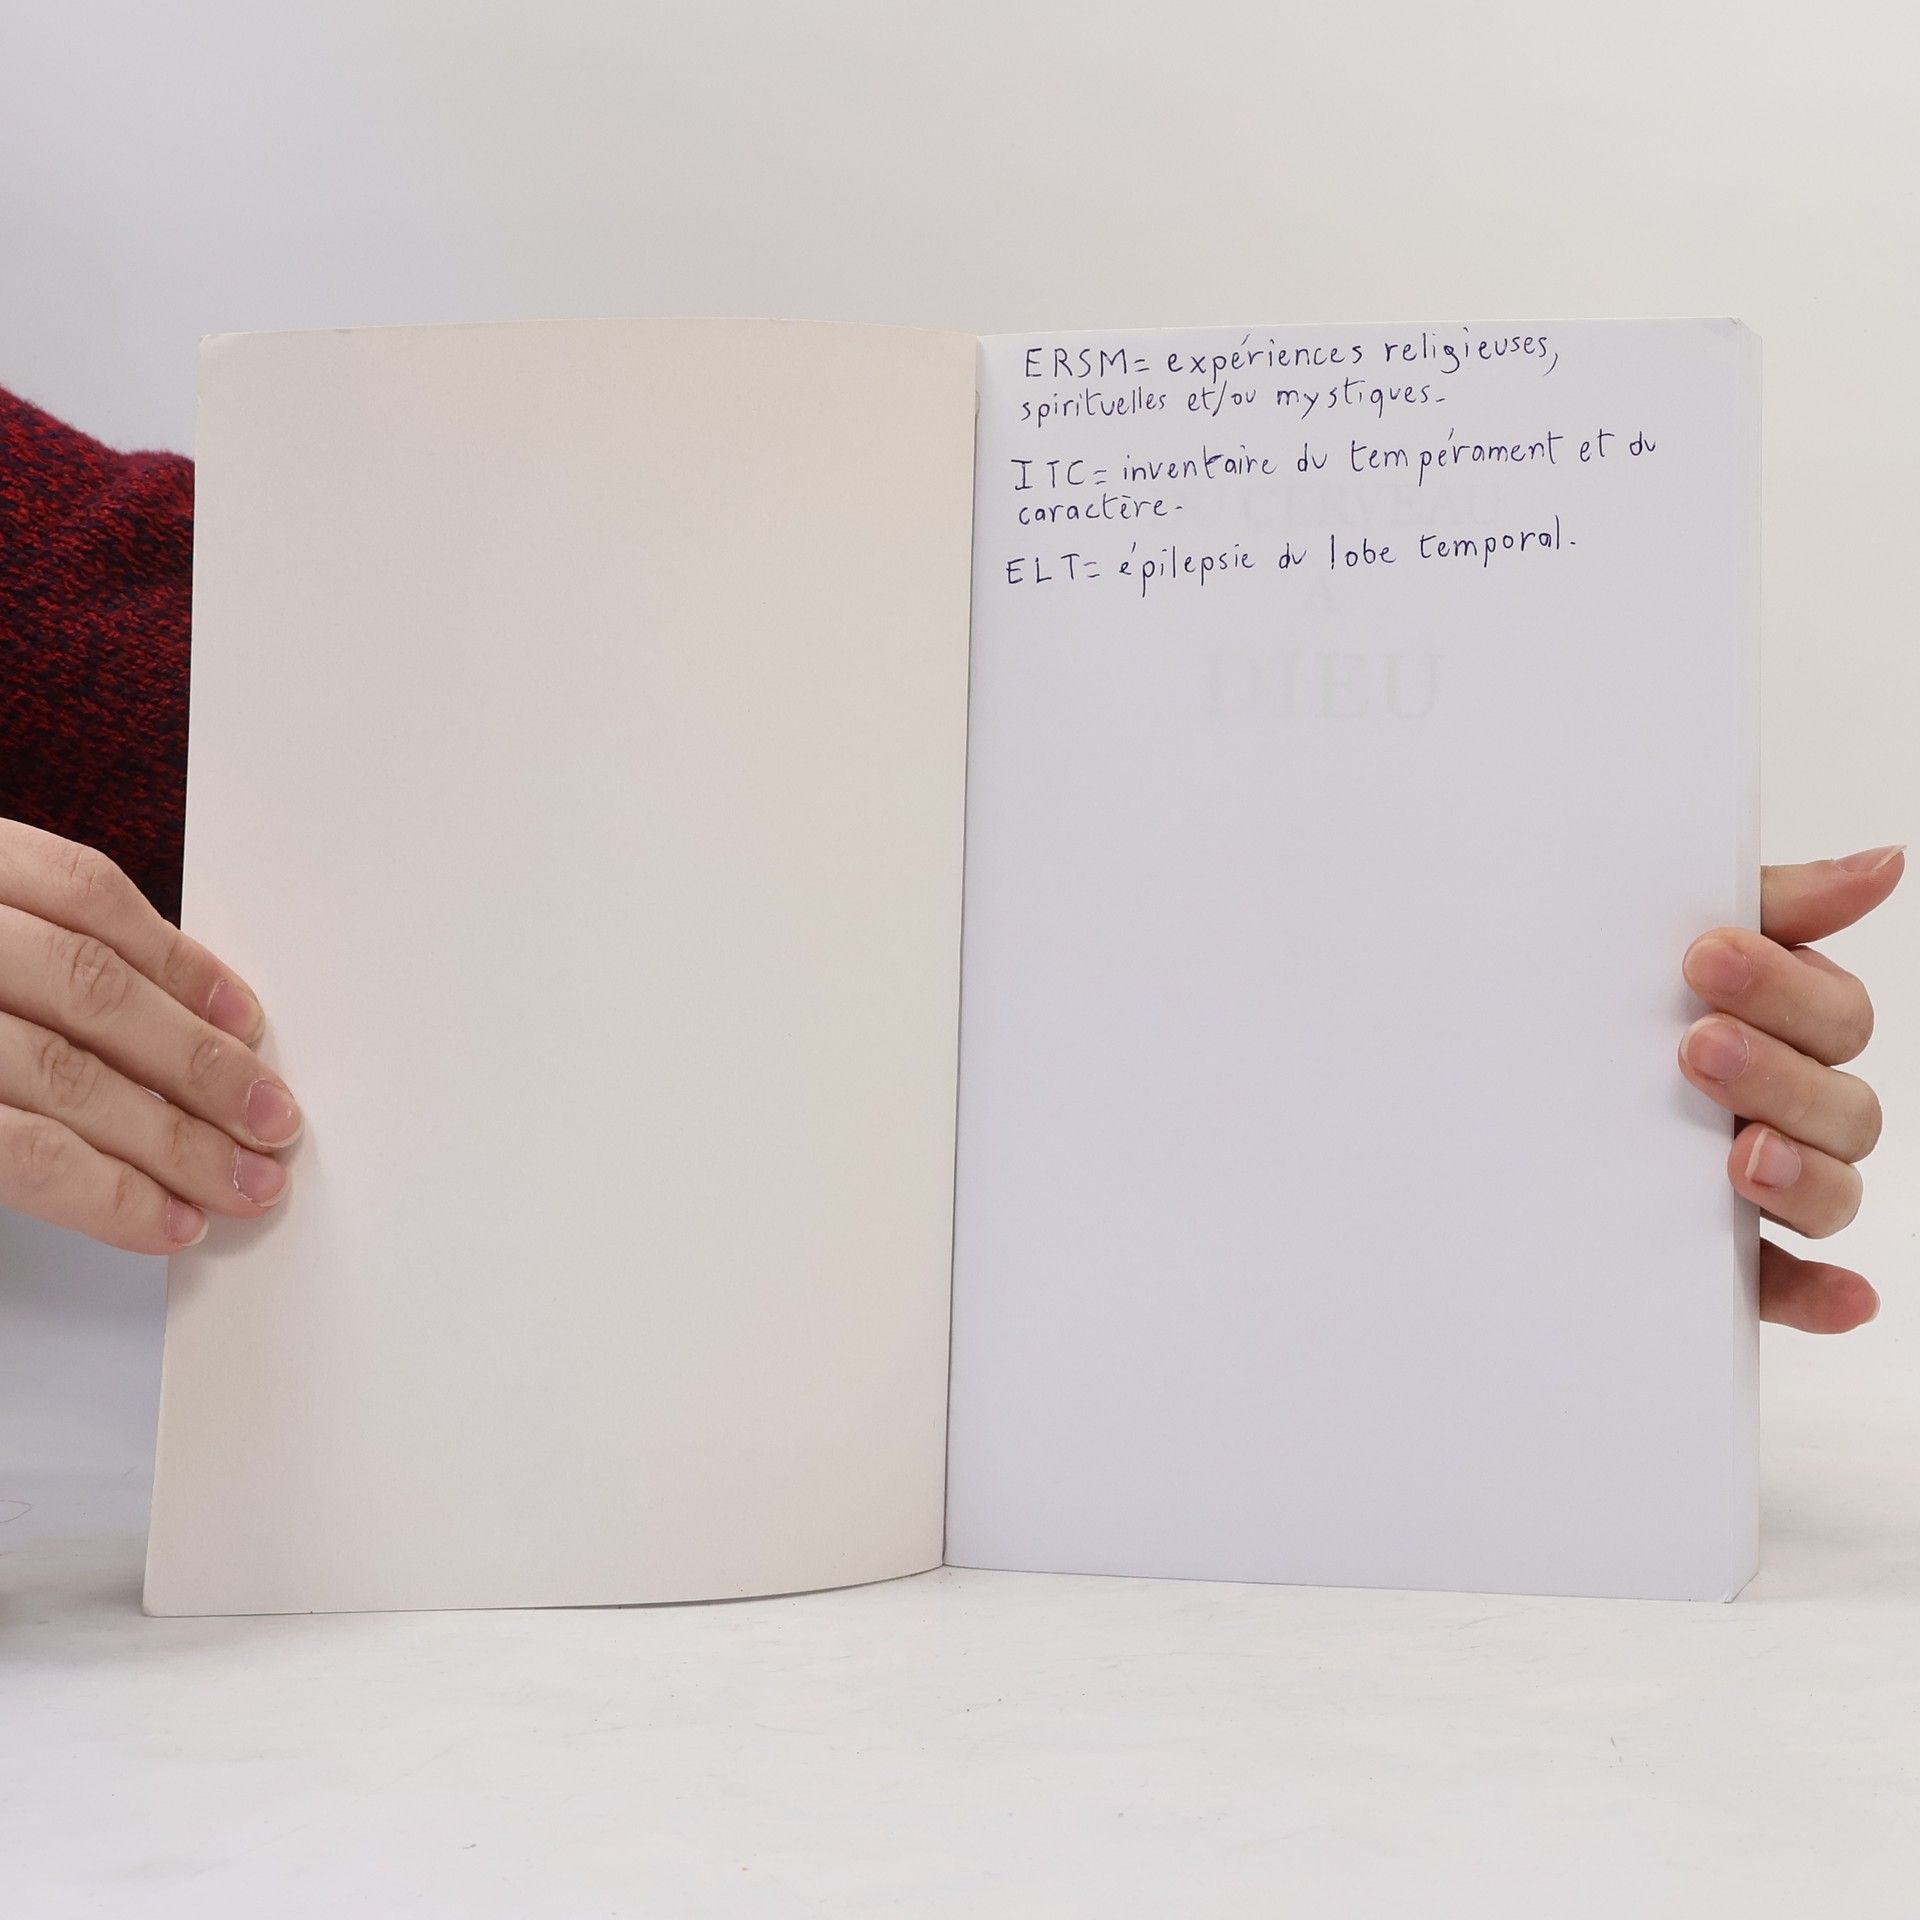 ERSM= expériences religieuses,
spirituelles et/ou mystiques.
ITC= inventaire du tempérament et du
caractère.
ELT= épilepsie du lobe temporal.
CERVEAU
DIEU